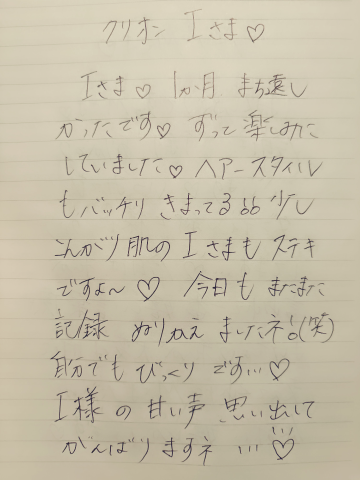 クリオン Iさま♡
Iさま♡ 1か月 まち遠し
かったです♡ ずって楽しみに
していました♡ ヘアースタイル
もバッチリ きまってる💦 少し
こんがり肌の Iさまも ステキ
ですよ〜♡ 今日も またまた
記録 ぬりかえ ましたネ!(笑)
自分でも びっくり です…♡
I様の甘い声 思い出して
がんばりますネ …♡